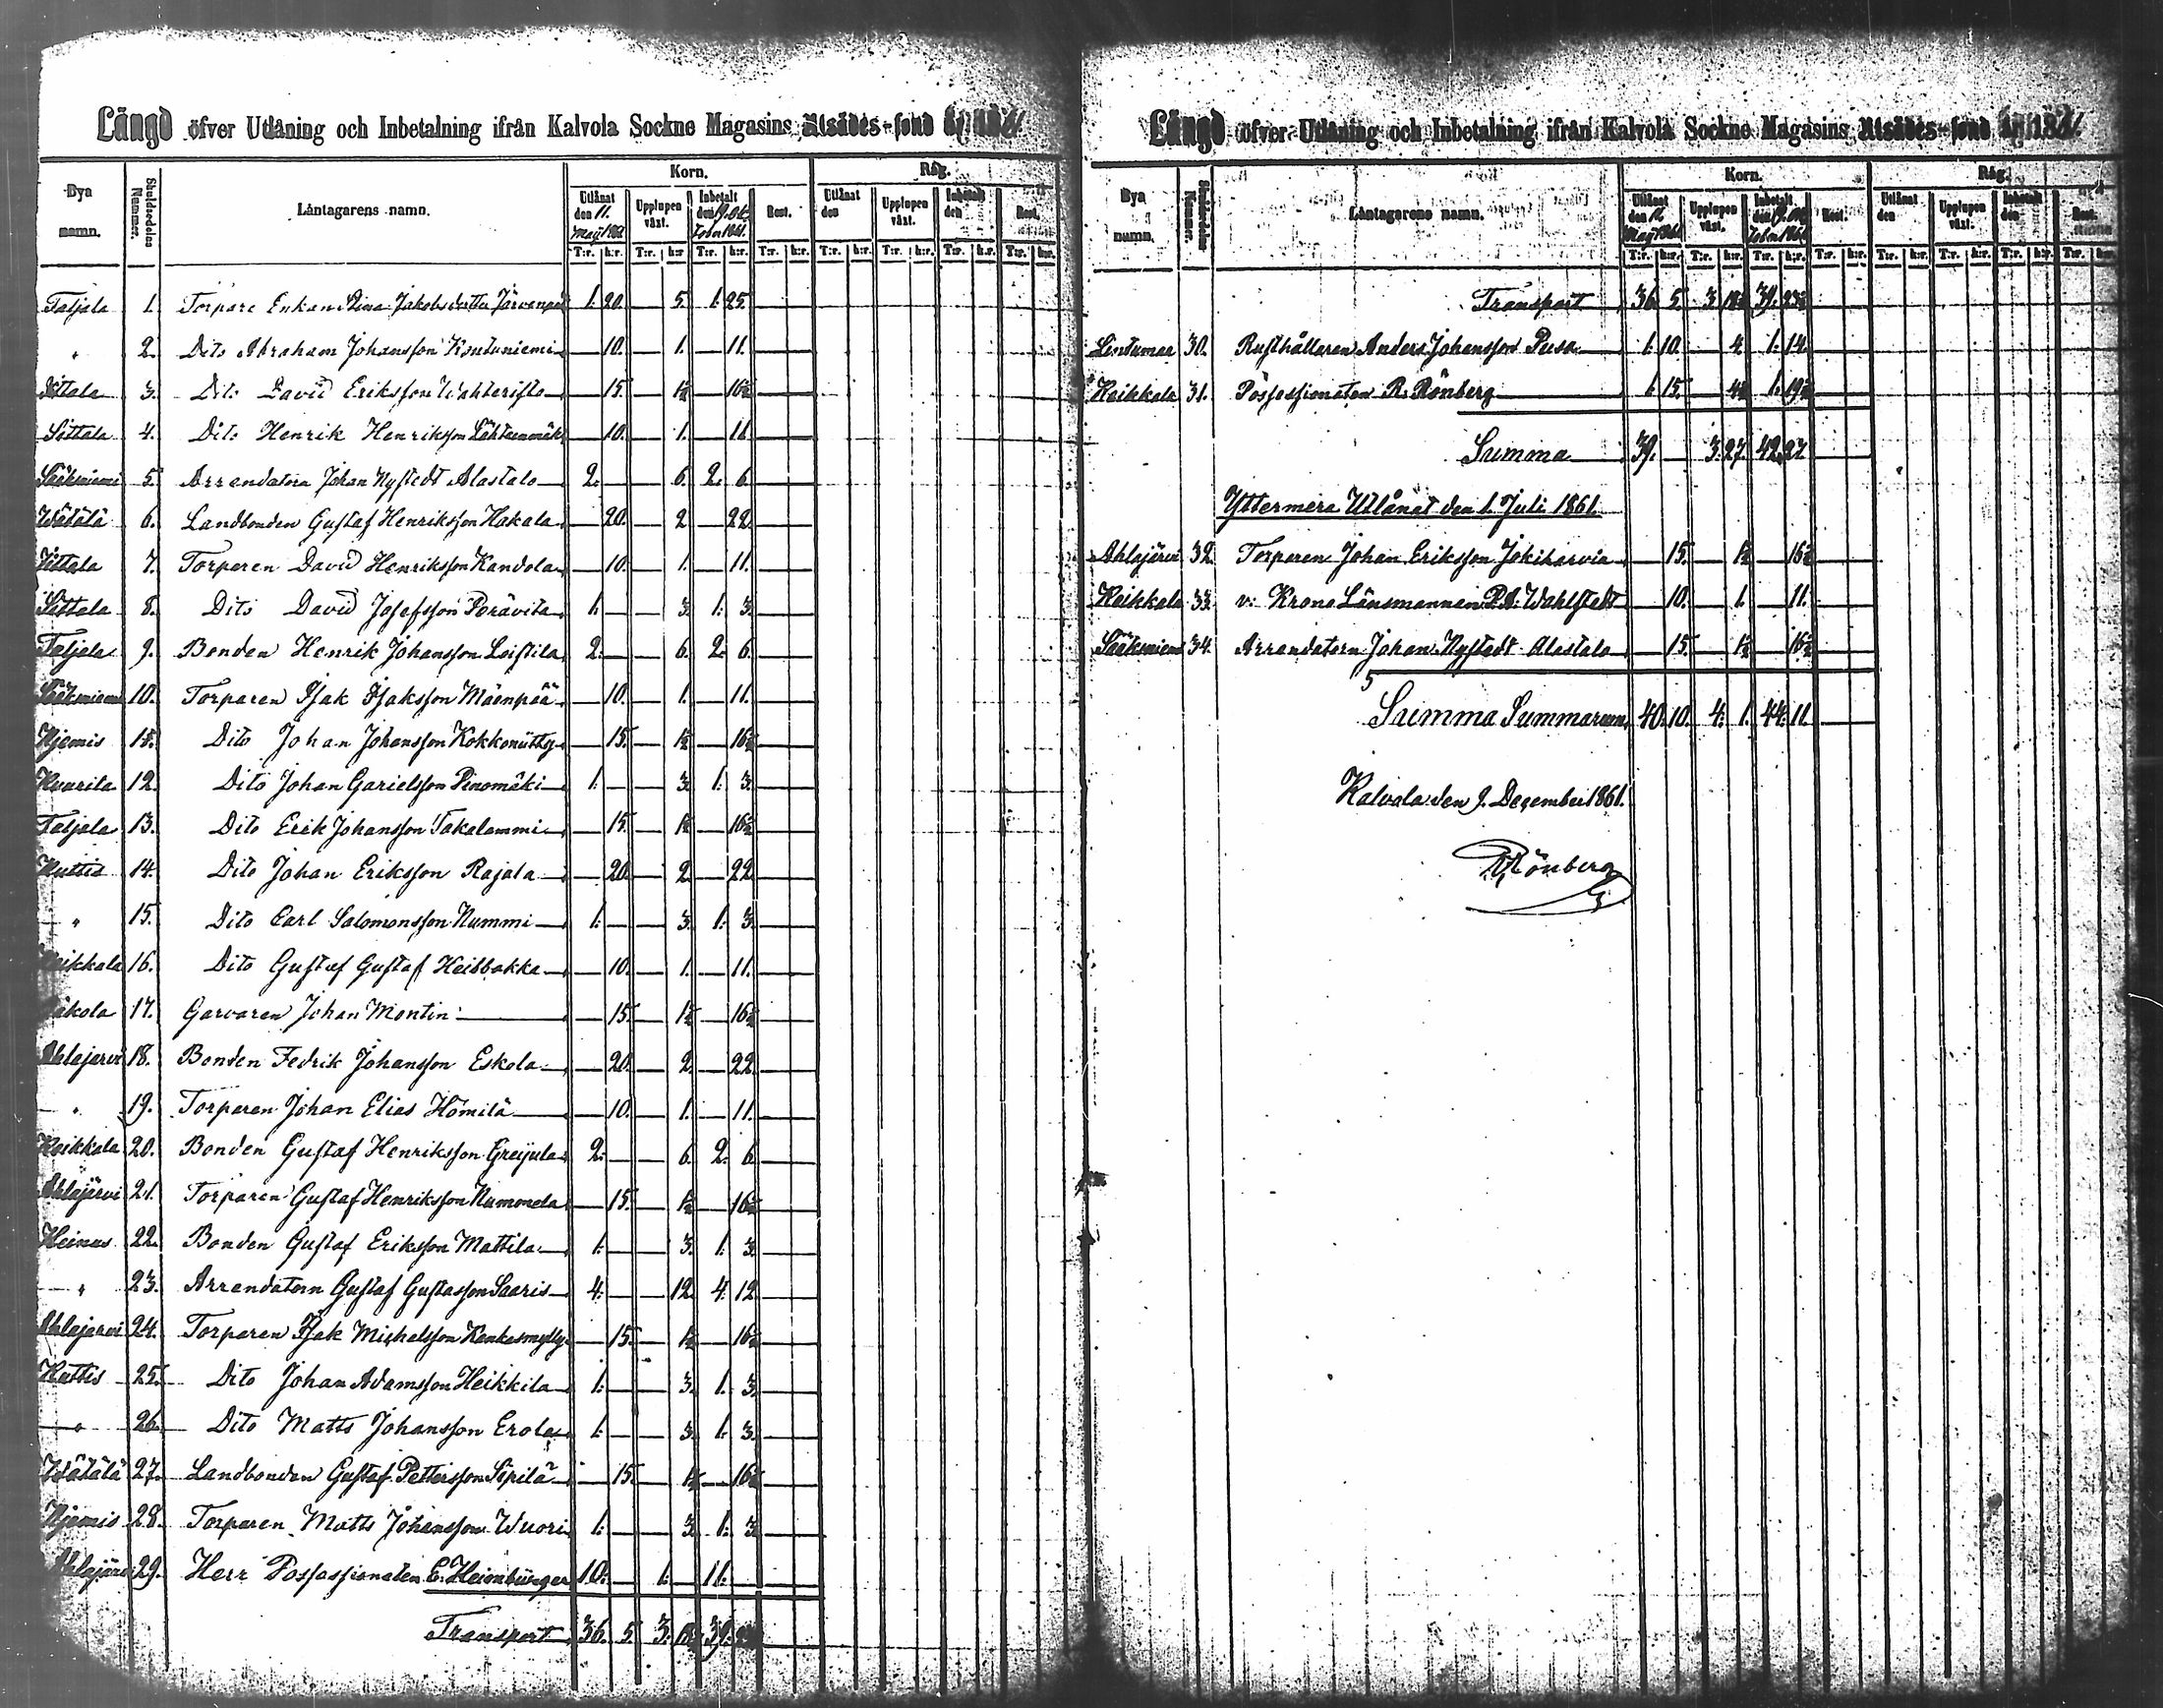 Längd öfver Utlåning och Inbetalning ifrån Kalvola Sockne Magasins Utsädes-fond år 1861.
Korn. Råg.
Bya namn. Skuldsedelns Nummer. Låntagarens namn. Utlånat den 11. May 1861 Upplupen växt. Inbetalt den 9. October 1861. Rest. Utlånat den Upplupen växt. Inbetalt den Rest.
T:r. k:r. T:r. k:r T:r. k:r. T:r. k:r. T:r. k:r. T:r. k:r. T:r. k:r. T:r. k:r.
Taljala 1. Torpare Enkan Stina Jakobsdotter Järvenpää 1. 20. — 5. 1. 25.
" 2. Dito Abraham Johansson Kontuniemi — 10. — 1. — 11.
Ittala 3. Dito David Eriksson Wahteristo — 15. — 1½ — 16½
Sittala 4. Dito Henrik Henriksson Lähteenmäki — 10. — 1. — 11.
Sääksniemi 5. Arrendatorn Johan Nystedt Alastalo 2. — 6. 2. 6.
Wätälä 6. Landbonden Gustaf Henriksson Hakala — 20. — 2 — 22.
Ittala 7. Torparen David Henriksson Kandola — 10. — 1. — 11.
Sittala 8. Dito David Josefsson Perävita 1. — 3. 1. 3.
Taljala 9. Bonden Henrik Johansson Loistila 2. — 6. 2. 6.
Sääksniemi 10. Torparen Isak Isaksson Mäenpää — 10. — 1. — 11.
Njemis 11. Dito Johan Johansson Kokkonütty — 15. — 1½ — 16½
Kuurila 12. Dito Johan Garielsson Pinomäki 1. — 3. 1. 3.
Taljala 13. Dito Erik Johansson Takalammi — 15. — 1½ — 16½
Kuttis 14. Dito Johan Eriksson Rajala — 20. — 2. — 22
" 15. Dito Carl Salomonsson Nummi 1. — 3. 1. 3.
Keikkala 16. Dito Gustaf Gustaf Heisbakka — 10. — 1. — 11.
17. Garvaren Johan Montin — 15. — 1½ — 16½
Ahlajärvi 18. Bonden Fedrik Johansson Eskola — 20. — 2. — 22.
" 19. Torparen Johan Elias Homilä — 10. — 1. — 11.
Keikkala 20. Bonden Gustaf Henriksson Greijula 2. — 6. 2. 6.
Ahlajärvi 21. Torparen Gustaf Henriksson Nummela — 15. — 1½ — 16½
Heinus 22. Bonden Gustaf Eriksson Mattila 1. — 3. 1. 3.
" 23. Arrendatorn Gustaf Gustasson Saaris 4. — 12. 4. 12
Ahlajarvi 24. Torparen Isak Michelsson Kankasmylly — 15. — 1½ — 16½
Kuttis 25. Dito Johan Adamsson Heikkila 1. — 3. 1. 3.
" 26. Dito Matts Johansson Erola 1. — 3. 1. 3.
Wätälä 27. Landbonden Gustaf Pettersson Sepilä — 15. — 1½ — 16½
Njemis 28. Torparen Matts Johansson Wuori 1. — 3. 1. 3
Ahlajärvi 29. Herr Possessionaten C. Heimbürger 10. — 1. — 11. —
Transport 36. 5. 3. 18½ 39. 23½
Längd öfver Utlåning och Inbetalning ifrån Kalvola Sockne Magasins Utsädes-fond år 1861.
Korn. Råg.
Bya namn. Skuldsedelns Nummer. Låntagarens namn. Utlånat den 11. May 1861 Upplupen växt. Inbetalt den 9. October 1861 Rest. Utlånat den Upplupen växt. Inbetalt den Rest.
T:r. k:r. T:r. k:r. T:r. k:r. T:r. k:r. T:r. k:r. T:r. k:r. T:r. k:r. T:r. k:r.
Transport 36. 5. 3 18½ 39. 23½
Lintumaa 30. Rusthållaren Anders Johansson Pusa 1. 10. — 4. 1. 14.
Keikkala 31. Possessionaten R. Rönberg 1. 15. — 4½ 1. 19½
Summa 39. — 3. 27. 42. 27
Yttermera Utlånat den 1. Juli 1861.
Ahlajärvi 32. Torparen Johan Eriksson Jokiharvia — 15. — 1½ — 16½
Keikkala 33. v: Krono Länsmannen P. A. Wahlstedt — 10. — 1. — 11.
Sääksniemi 34. Arrendatorn Johan Nystedt Alastalo — 15. — 1½ — 16½
Summa Summarum 40. 10. 4. 1. 44. 11.
Kalvola den 9. December 1861.
R Rönberg